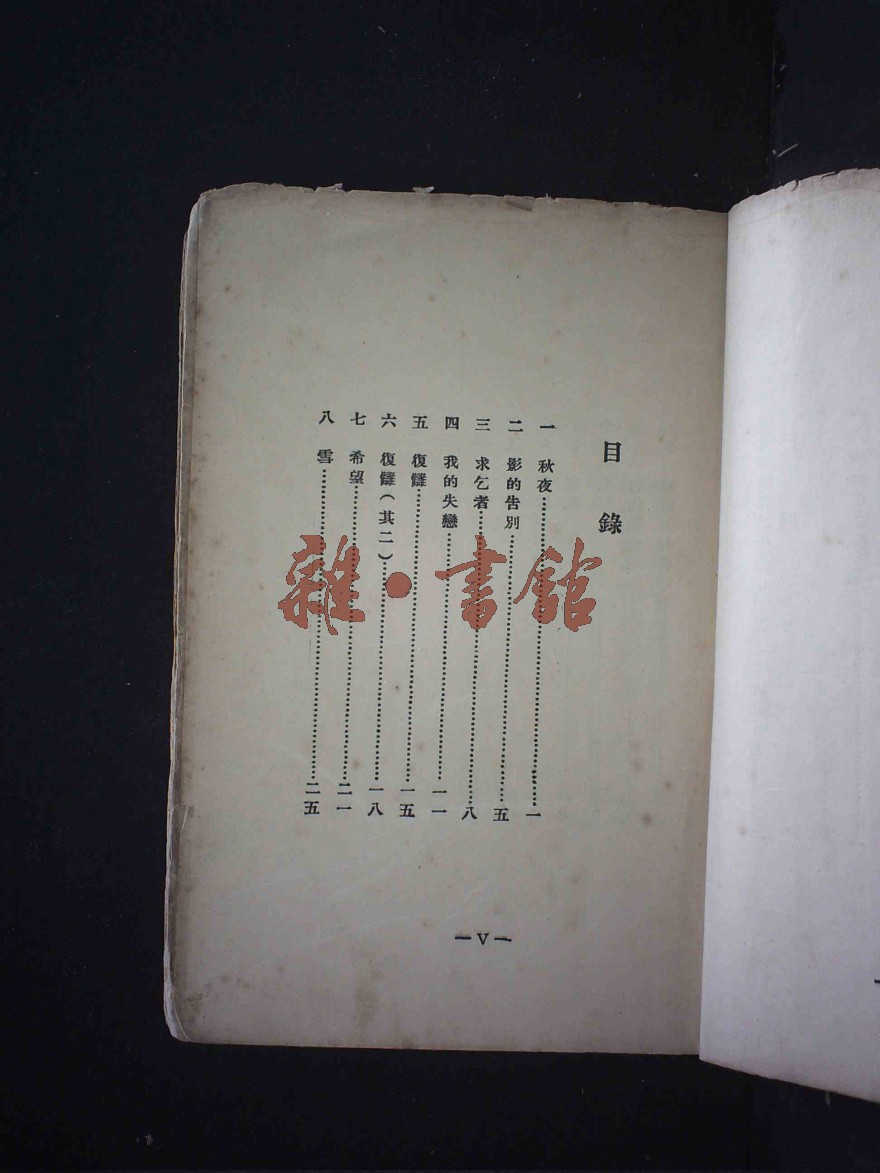 目錄
一 秋夜……一
二 影的告別……五
三 求乞者……八
四 我的失戀……一一
五 復讎……一五
六 復讎(其二)……一八
七 希望……二一
八 雪……二五
—V—
雜·書館